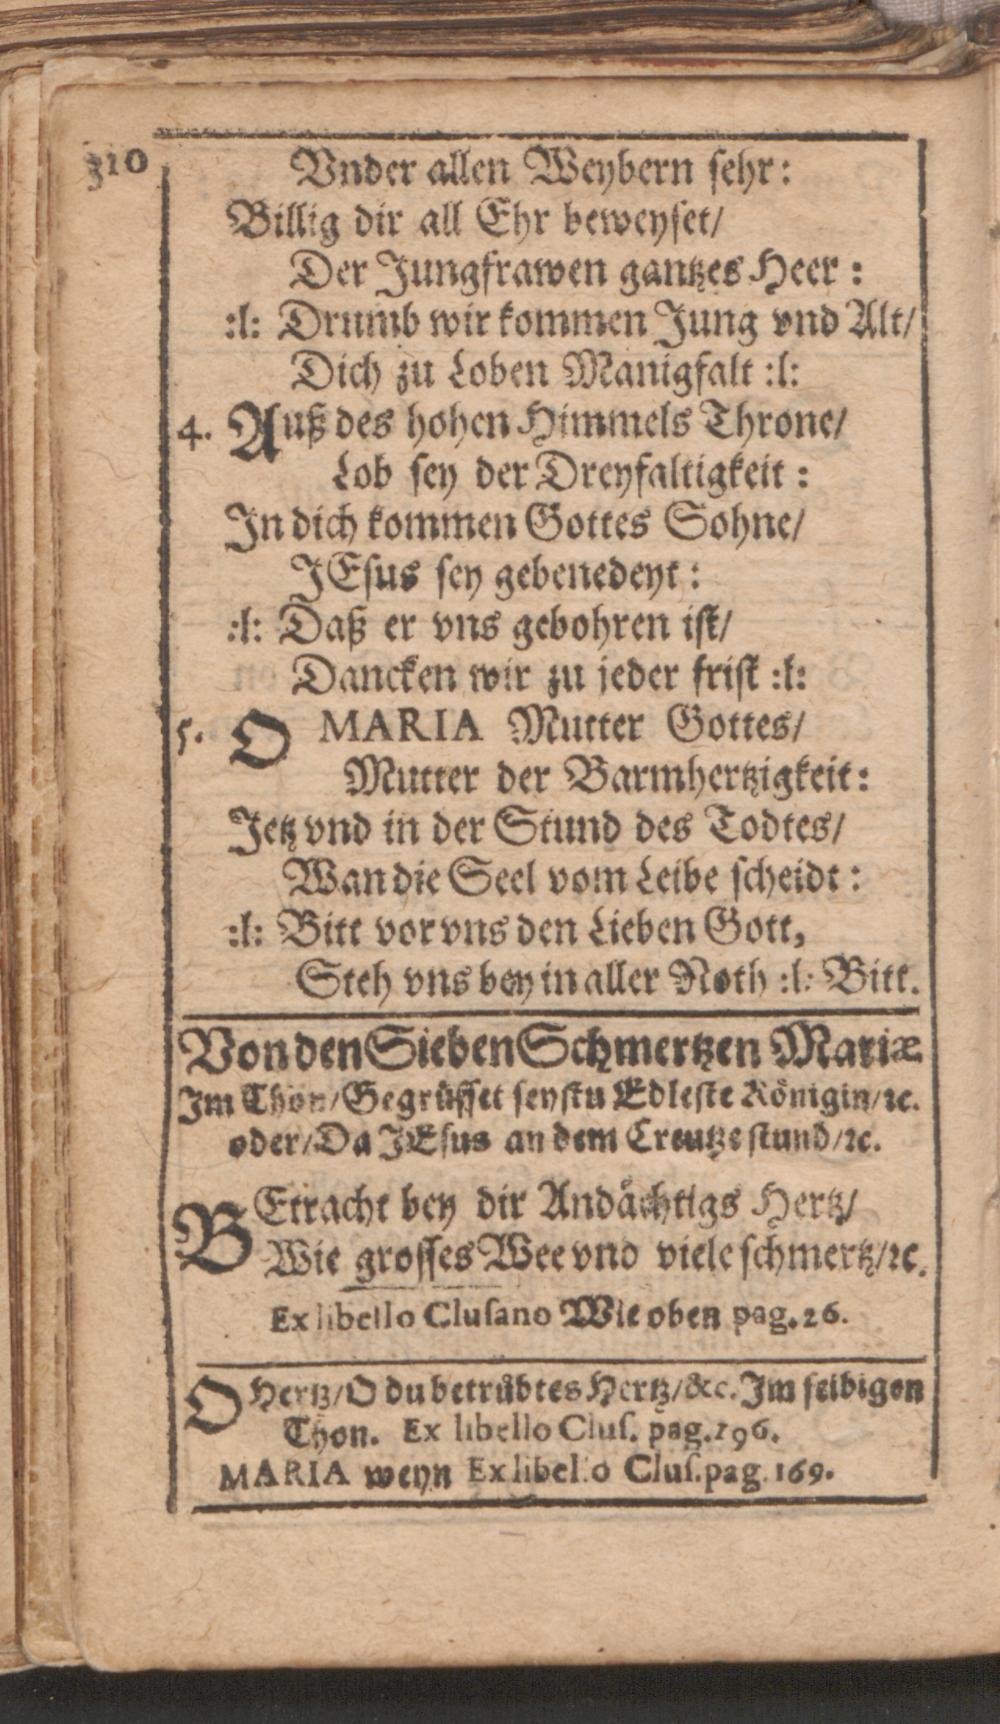 310
Vnder allen Weybern sehr:
Billig dir all Ehr beweyset/
Der Jungfrawen gantzes Heer:
:l: Drumb wir kommen Jung vnd Alt/
Dich zu Loben Manigfalt :l:
4. Auß des hohen Himmels Throne/
Lob sey der Dreyfaltigkeit:
In dich kommen Gottes Sohne/
JEsus sey gebenedeyt:
:l: Daß er vns gebohren ist/
Dancken wir zu jeder frist :l:
5. O MARIA Mutter Gottes/
Mutter der Barmhertzigkeit:
Jetz vnd in der Stund des Todtes/
Wan die Seel vom Leibe scheidt:
:l: Bitt vor vns den Lieben Gott,
Steh vns bey in aller Noth :l: Bitt.
Von den Sieben Schmertzen Mariæ
Im Thon/Gegrüsset seystu Edleste Königin/ꝛc.
oder/Da JEsus an dem Creutze stund/ꝛc.
BEtracht bey dir Andächtigs Hertz/
Wie grosses Wee vnd viele schmertz/ꝛc.
Ex libello Clusano Wie oben pag. 26.
O Hertz/O du betrübtes Hertz/&c. Im selbigen
Thon. Ex libello Clus. pag. 196.
MARIA weyn Ex libello Clus. pag. 169.